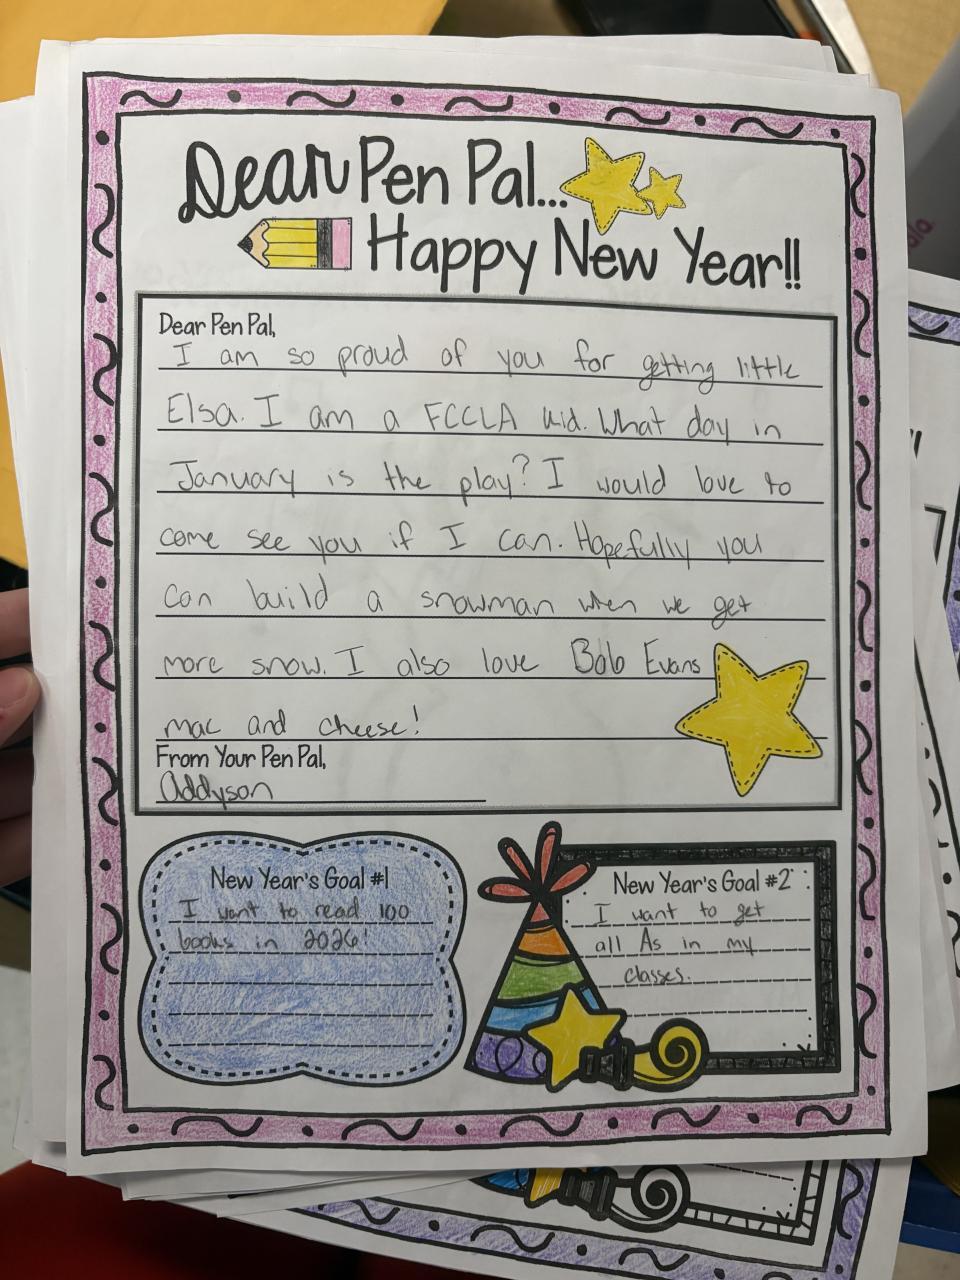 Dear Pen Pal...
Happy New Year!!
Dear Pen Pal,
I am so proud of you for getting little
Elsa. I am a FCCLA kid. What day in
January is the play? I would love to
come see you if I can. Hopefully you
can build a snowman when we get
more snow. I also love Bob Evans
mac and cheese!
From Your Pen Pal,
Addyson
New Year's Goal #1
I want to read 100
books in 2026!
New Year's Goal #2
I want to get
all As in my
classes.